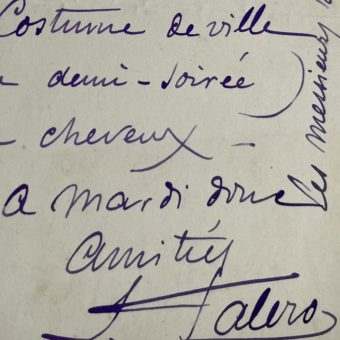 Costume de ville
demi-soirée
- cheveux -
a mardi donc
amitiés
Les messieurs